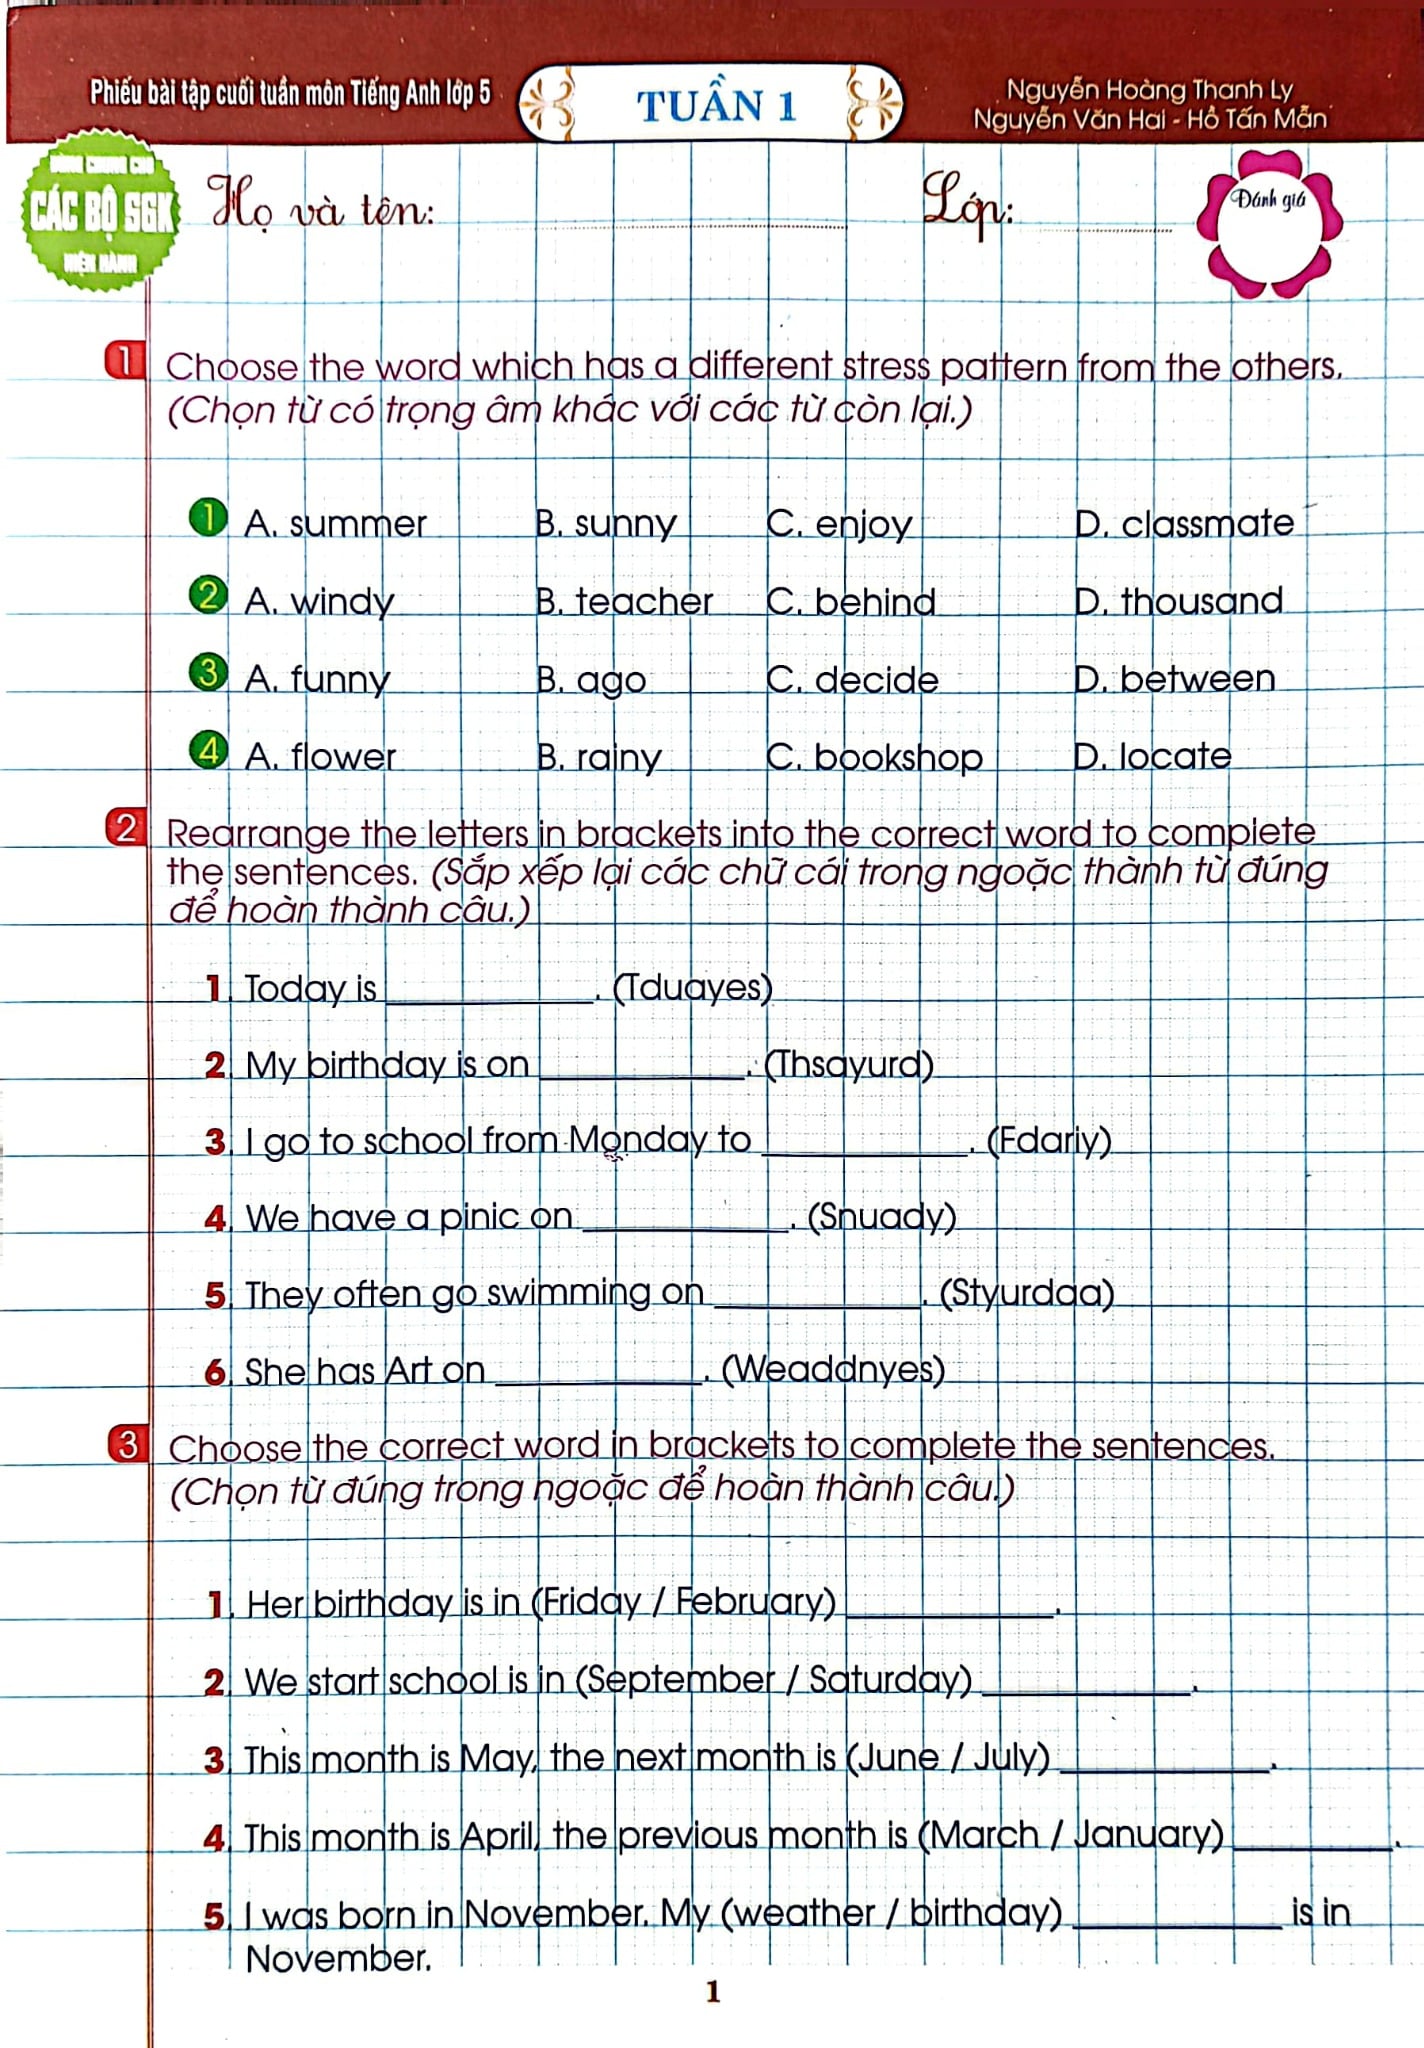 Phiếu bài tập cuối tuần môn Tiếng Anh lớp 5
TUẦN 1
Nguyễn Hoàng Thanh Ly
Nguyễn Văn Hai - Hồ Tấn Mẫn
DÙNG CHUNG CHO
CÁC BỘ SGK
HIỆN HÀNH
Họ và tên:
Lớp:
Đánh giá
1 Choose the word which has a different stress pattern from the others.
(Chọn từ có trọng âm khác với các từ còn lại.)
1 A. summer B. sunny C. enjoy D. classmate
2 A. windy B. teacher C. behind D. thousand
3 A. funny B. ago C. decide D. between
4 A. flower B. rainy C. bookshop D. locate
2 Rearrange the letters in brackets into the correct word to complete
the sentences. (Sắp xếp lại các chữ cái trong ngoặc thành từ đúng
để hoàn thành câu.)
1. Today is ____________. (Tduayes)
2. My birthday is on ____________. (Thsayurd)
3. I go to school from Monday to ____________. (Fdariy)
4. We have a pinic on ____________. (Snuady)
5. They often go swimming on ____________. (Styurdaa)
6. She has Art on ____________. (Weaddnyes)
3 Choose the correct word in brackets to complete the sentences.
(Chọn từ đúng trong ngoặc để hoàn thành câu.)
1. Her birthday is in (Friday / February) ____________.
2. We start school is in (September / Saturday) ____________.
3. This month is May, the next month is (June / July) ____________.
4. This month is April, the previous month is (March / January) _________.
5. I was born in November. My (weather / birthday) ____________ is in
November.
1